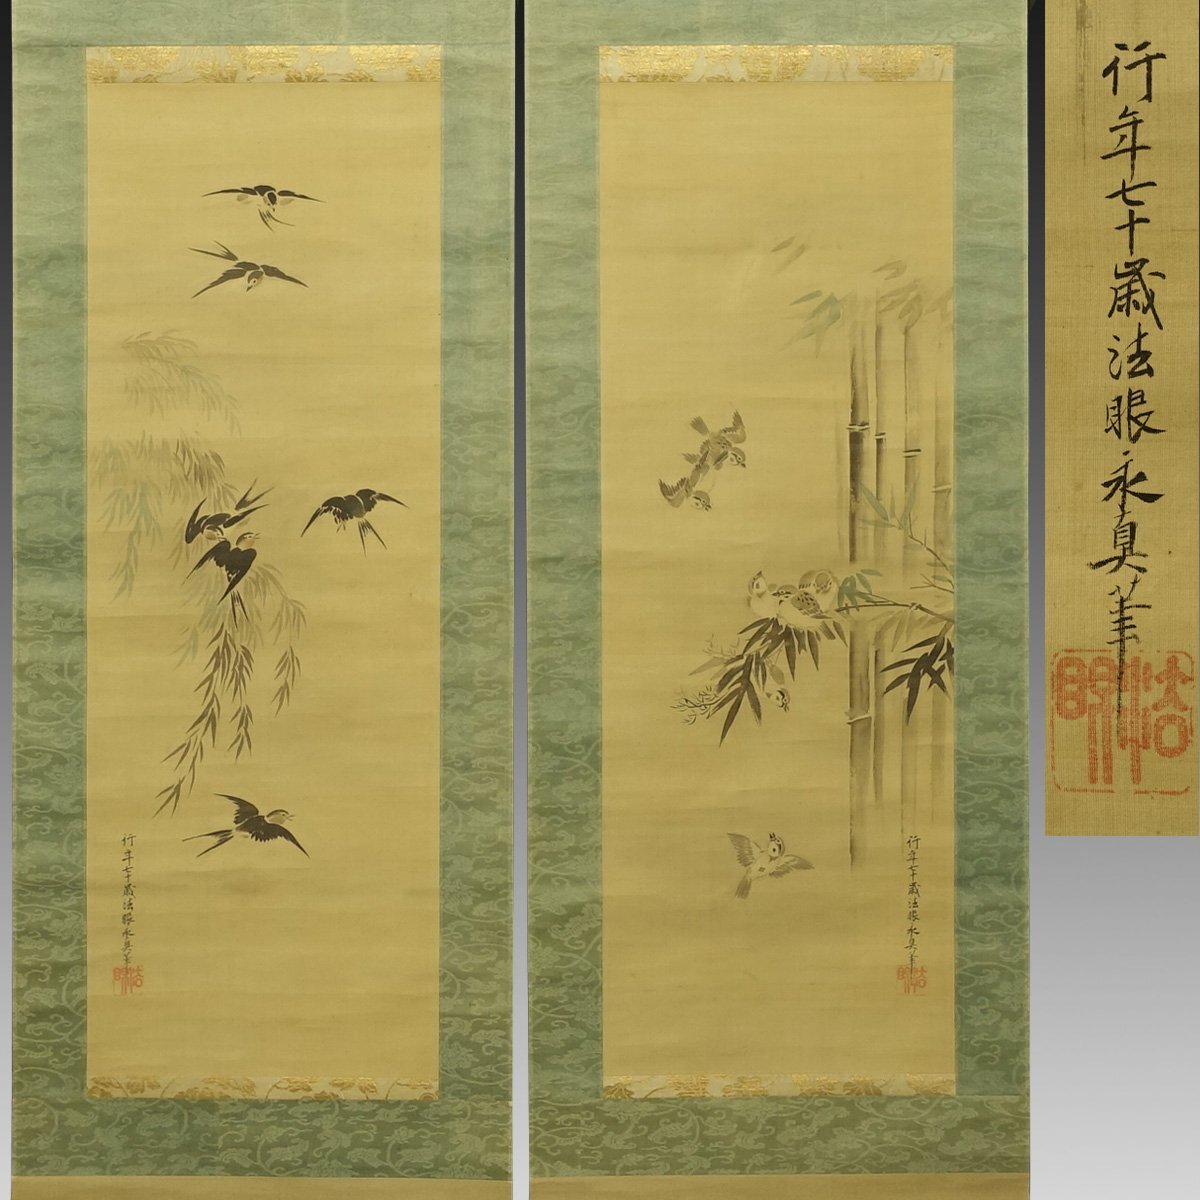 行年七十歳法眼永真筆
行年七十歳法眼永真筆
行年七十歳法眼永真筆